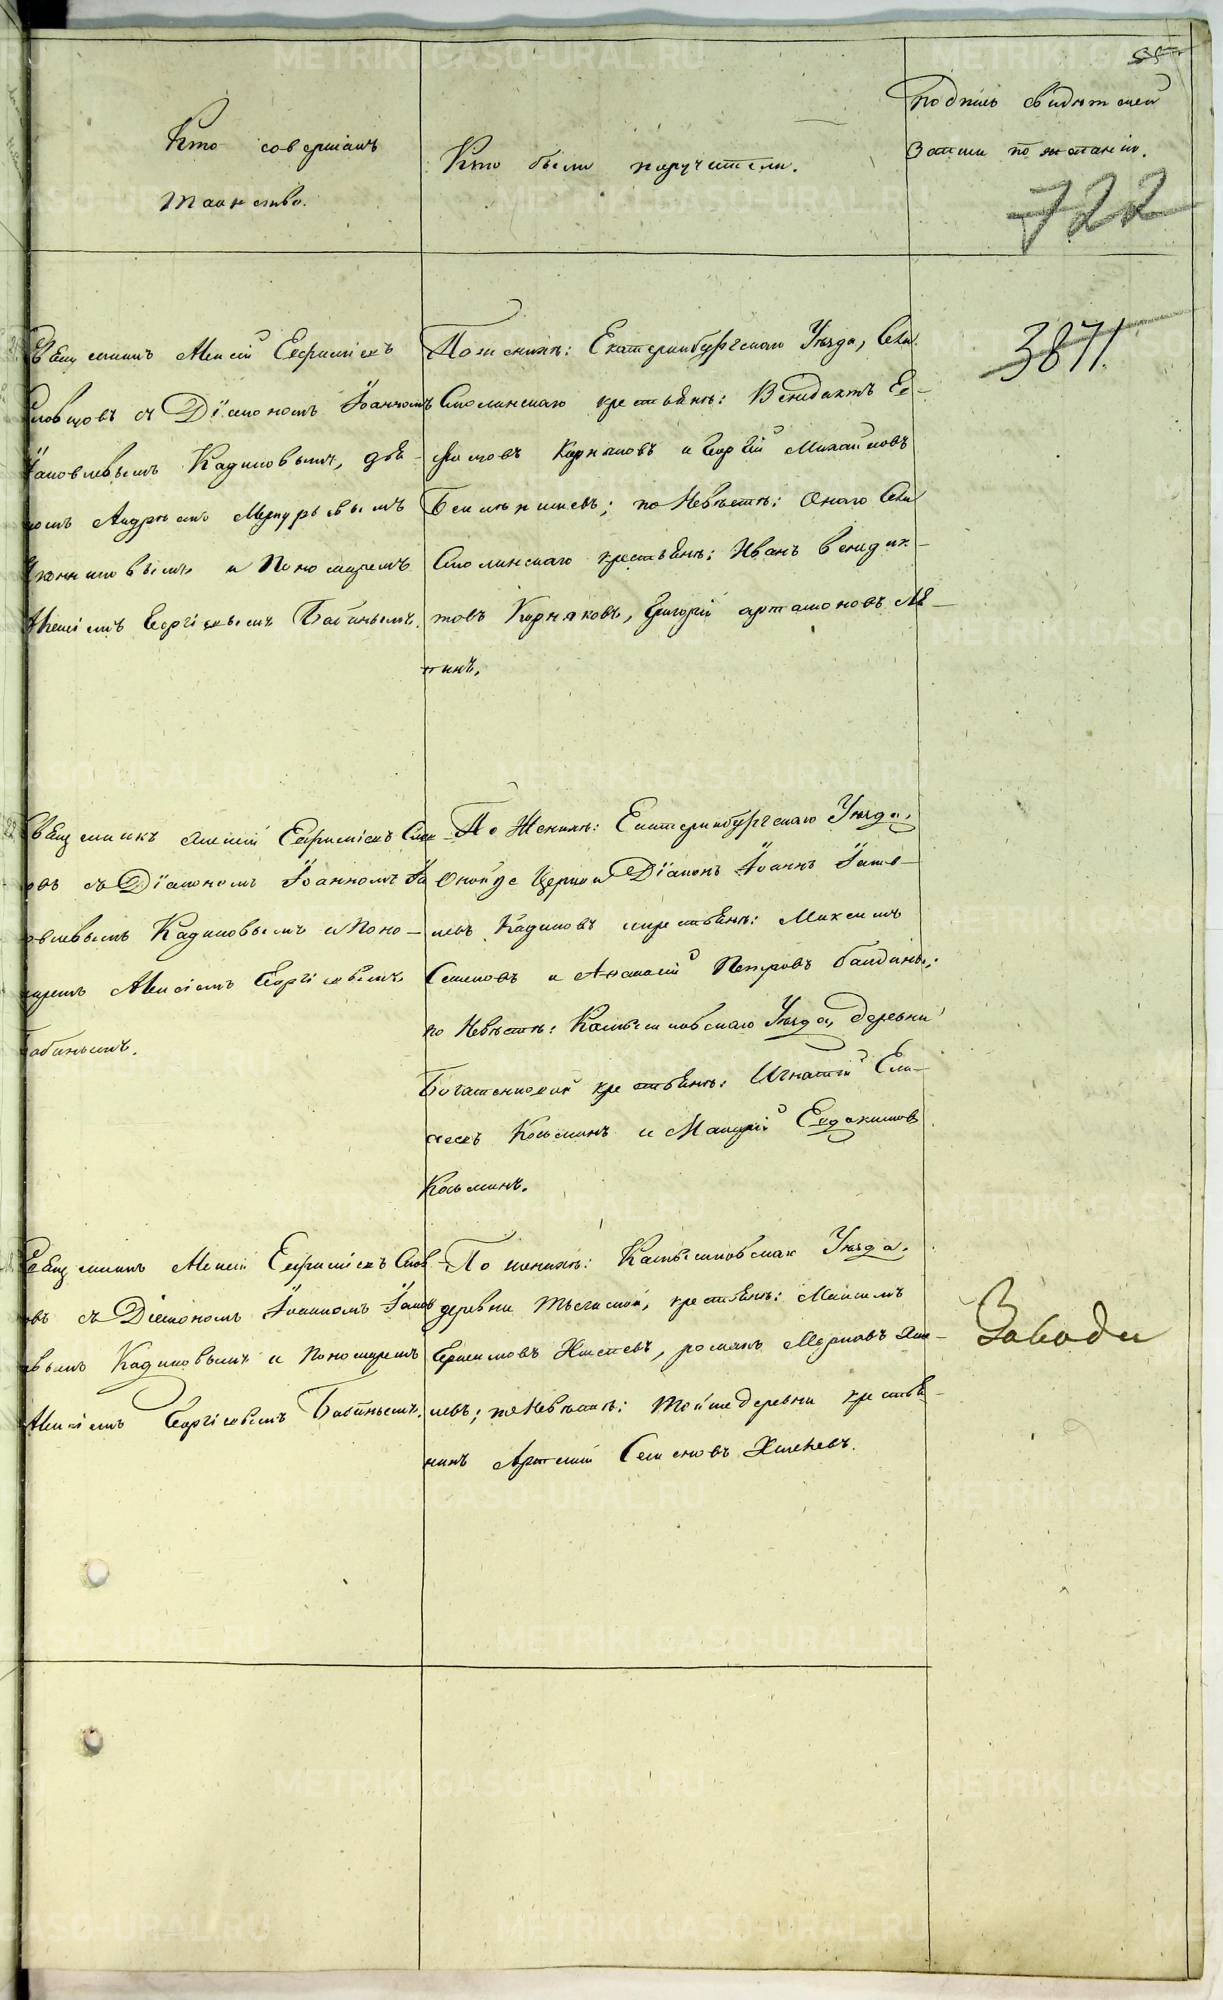 Кто совершалъ
таинство.
Кто были поручители.
Подпись свидѣтелей
записи по желанію.
722
3871.
Священникъ Алексій Евфиміевъ
Словцовъ съ Діакономъ Іоанномъ
Іаковлевымъ Кадиковымъ, дья-
комъ Андреемъ Меркурьевымъ
и Пономаремъ
Алексіемъ Георгіевымъ Бабинымъ.
По женихѣ: Екатеринбургскаго Уѣзда, Села
Смолинскаго крестьяне: Венидиктъ Ев-
фимовъ Корняковъ и Георгій Михайловъ
по Невѣстѣ: Онаго Села
Смолинскаго крестьяне: Иванъ Венидик-
товъ Корняковъ, Григорій Артамоновъ Ля-
пинъ.
Священникъ Алексій Евфиміевъ Слов-
овъ съ Діакономъ Іоанномъ Іа-
овлевымъ Кадиковымъ и Поно-
аремъ Алексіемъ Георгіевымъ
Бабинымъ.
По Женихѣ: Екатеринбургскаго Уѣзда,
Оной же Церкви Діаконъ Іоаннъ Іаков-
левъ Кадиковъ и крестьяне: Максимъ
Семеновъ и Афанасій Петровъ Балдины;
по Невѣстѣ: Камышловскаго Уѣзда, деревни
Богатенковой крестьяне: Игнатій Ели-
сеевъ Косьминъ и Макарій Евдокимовъ
Косьминъ.
Священникъ Алексій Евфиміевъ Слов-
овъ съ Діакономъ Іоанномъ Іаков-
евымъ Кадиковымъ и Пономаремъ
Алексіемъ Георгіевымъ Бабинымъ.
По женихѣ: Камышловскаго Уѣзда,
деревни крестьяне: Максимъ
Хмелевъ, Романъ Марковъ Хме-
левъ; по Невѣстѣ: Той же деревни крестья-
нинъ Артемій Семеновъ Хмелевъ.
Заводи
METRIKI.GASO-URAL.RU